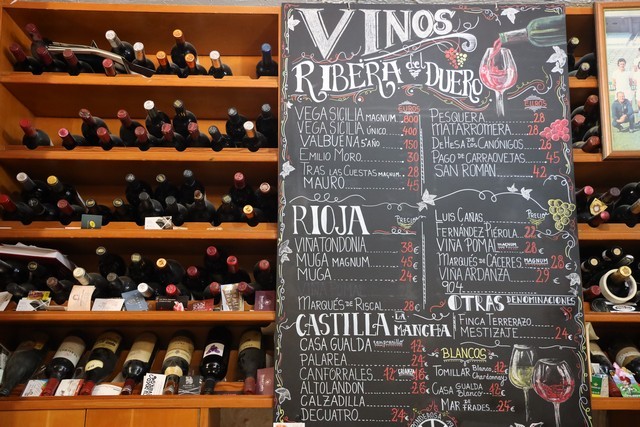 VINOS
RIBERA del DUERO
EUROS
VEGA SICILIA MAGNUM 800
VEGA SICILIA ÚNICO 400
VALBUENA 5º AÑO 150
EMILIO MORO 30
TRAS LAS CUESTAS MAGNUM 28
MAURO 45
EUROS
PESQUERA 28
MATARROMERA 28
DEHESA DE LOS CANÓNIGOS 26
PAGO DE CARRAOVEJAS 45
SAN ROMÁN 42
RIOJA
PRECIO
VIÑA TONDONIA 38€
MUGA MAGNUM 45€
MUGA 24€
MARQUÉS DE RISCAL 28€
PRECIO
LUIS CAÑAS
FERNÁNDEZ PIÉROLA 22€
VIÑA POMAL MAGNUM 28€
MARQUÉS DE CÁCERES MAGNUM 28€
VIÑA ARDANZA 29€
904
OTRAS DENOMINACIONES
FINCA TERRERAZO
MESTIZAJE 24€
CASTILLA-LA MANCHA
CASA GUALDA tempranillo 12€
PALAREA 24€
CANFORRALES 12€ 16€
ALTOLANDON 26€
CALZADILLA
DECUATRO 24€
BLANCOS
TOMILLAR Blanco Chardonnay 12€
CASA GUALDA Blanco 12€
MAR DE FRADES 25€